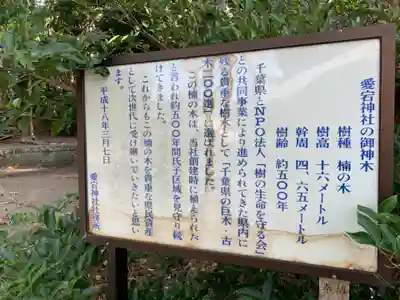 愛宕神社の御神木
樹種 楠の木
樹高 十六メートル
幹周 四、六五メートル
樹齢 約五〇〇年
千葉県とNPO法人「樹の生命を守る会」
との共同事業により進められてきた県内に
残る貴重な樹木として「千葉県の巨木・古
木二〇〇選」に選ばれました。
この楠の木は、当社創建時に植えられた
と言われ約五〇〇年間氏子区域を見守り続
けてきました。
これからもこの楠の木を貴重な県民資産
として次世代に受け継いでいきたいと思い
ます。
平成十八年三月七日
愛宕神社社務所
奉納